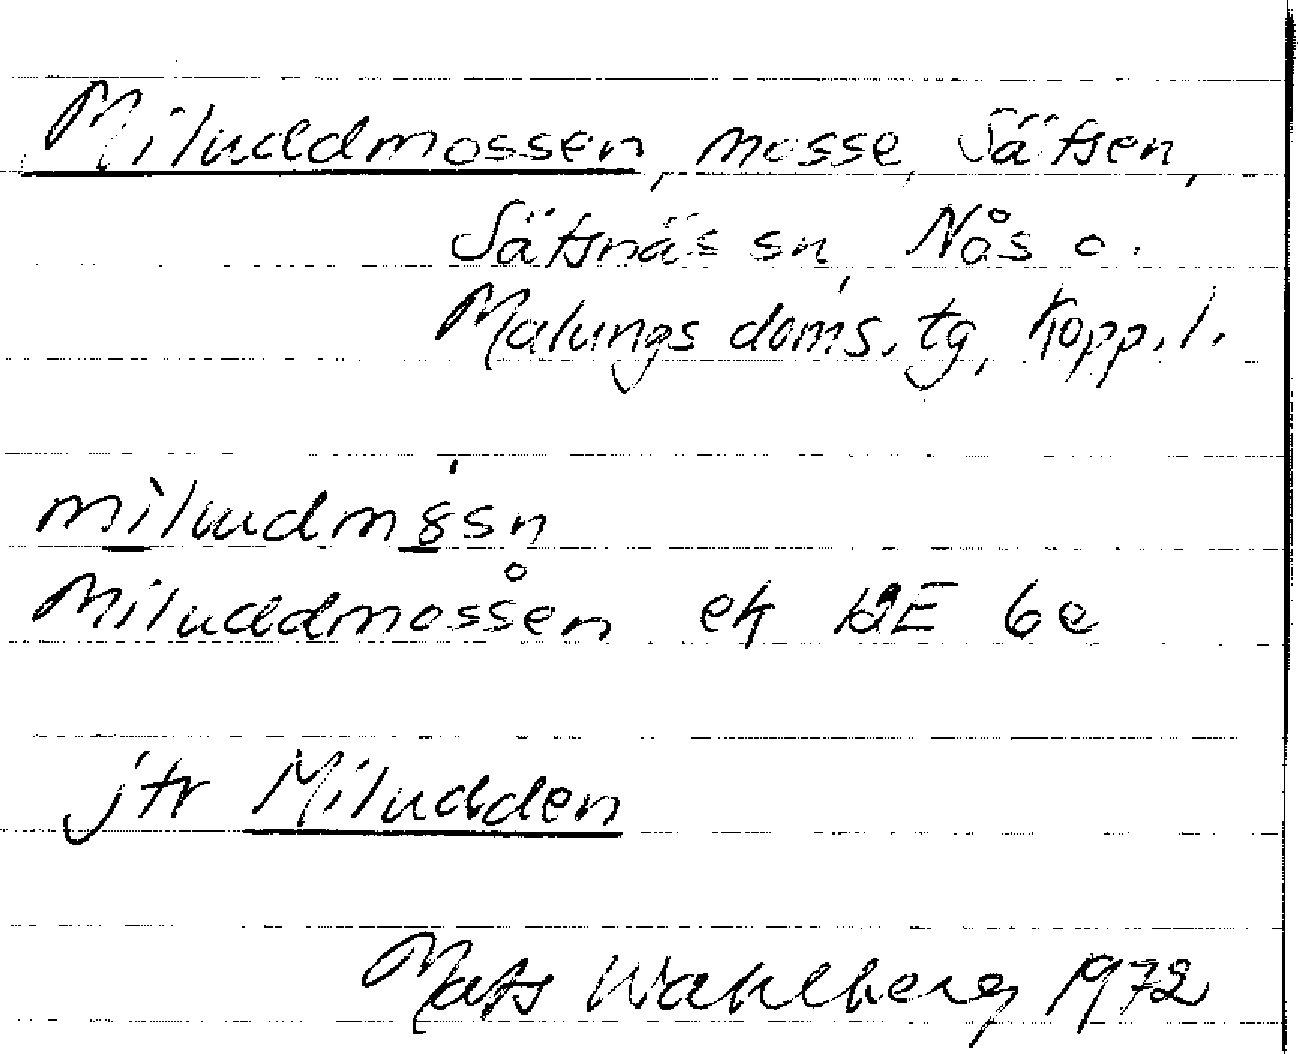 Miluddmossen, mosse, Sätsen,
Sätsnäs sn, Nås o.
Malungs doms. tg, Kopp. l.
Miluddmossen ek 12E 6e
jfr Miludden
Mats Wahlberg 1972